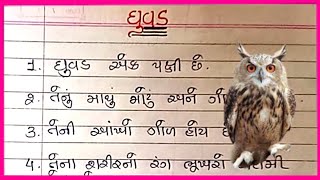 ઘુવડ
૧. ઘુવડ એક પક્ષી છે.
૨. તેનું માથું મોટું અને ગો
૩. તેની આંખો ગોળ હોય છે
૪. તેના શરીરનો રંગ ભૂખરો